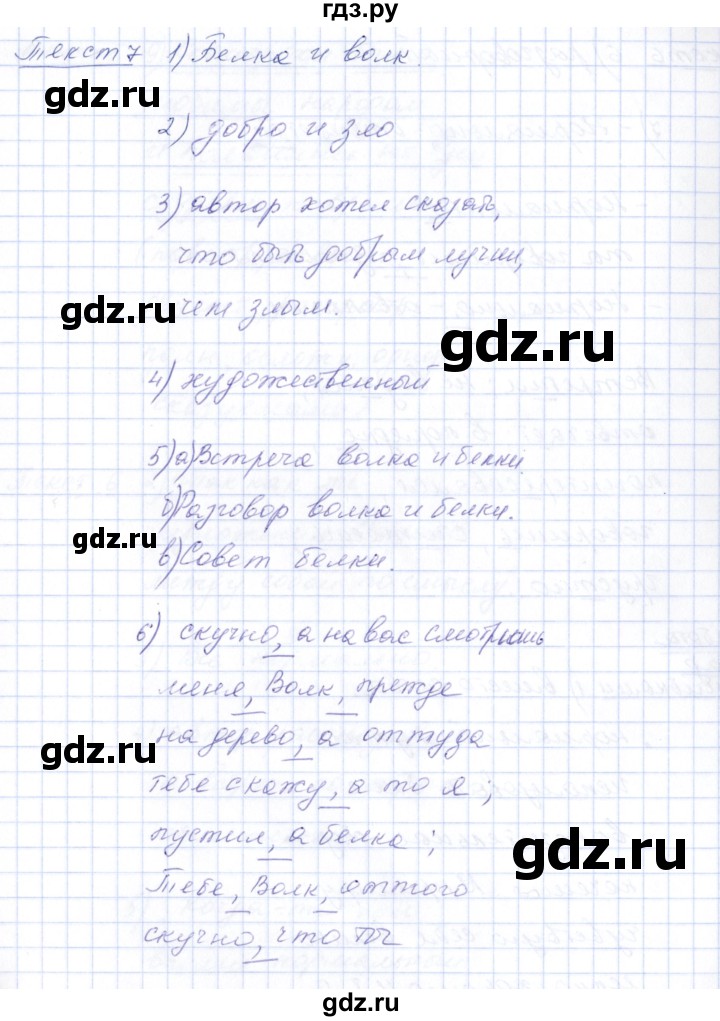 гдз.ру
Текст 7 1) Белка и волк.
gdz.ru
2) добро и зло
3) автор хотел сказать,
что быть добрым лучше,
чем злым.
gdz.ru
gdz.ru
4) художественный
5) а) Встреча волка и белки.
б) Разговор волка и белки.
gdz.ru
в) Совет белки.
6) скучно, а на вас смотришь
меня, Волк, прежде
на дерево, а оттуда
gdz.ru
тебе скажу, а то я;
пустил, а белка;
gdz.ru
Тебе, Волк, оттого
скучно, что ты
gdz.ru
gdz.ru